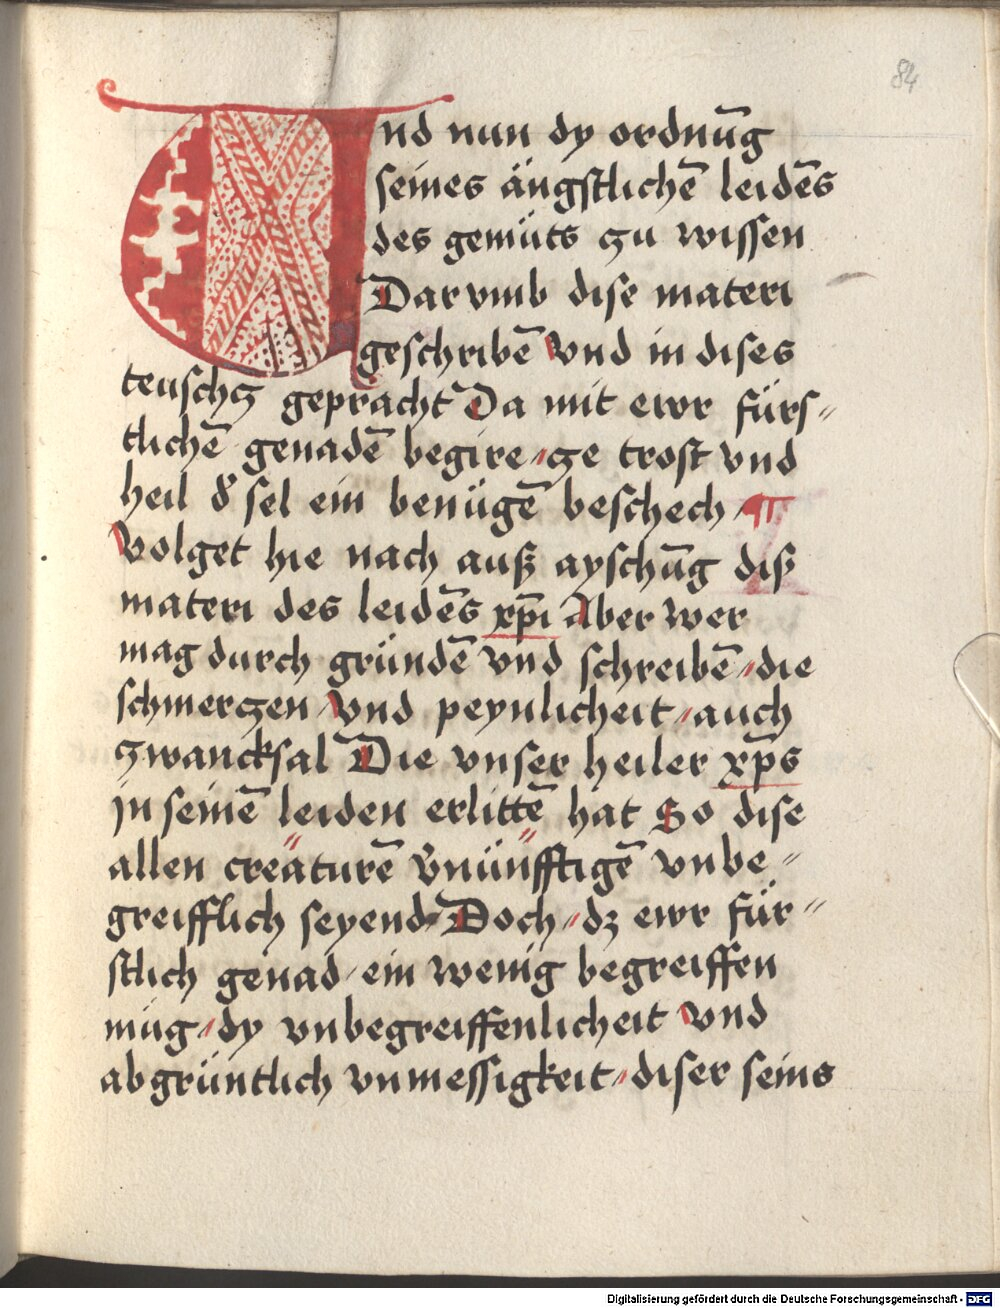 84
Und nun dy ordnūg
seines ängstlichē leidēs
des gemüts zu wissen
Dar vmb dise materi
geschribē Vnd in dises
teuschz gepracht Da mit ewr fürs⸗
tlichē genadē begire / ze trost vnd
heil d̾ sel ein benügē beschech / ¶
Volget hie nach auß ayschūg diß
materi des leidēs xp̄i Aber wer
mag durch gründē vnd schreibē / die
schmerczen / Vnd peynlicheit / auch
zwancksal Die vnser heiler xp̄s
in seinē leiden erlittē hat So dise
allen creäturē v̾nünfftigē vnbe⸗
greifflich seyend Doch / dz ewr für⸗
stlich genad / ein wenig begreiffen
müg / dy vnbegreiffenlicheit Vnd
abgrüntlich vnmessigkeit / diser seins
Digitalisierung gefördert durch die Deutsche Forschungsgemeinschaft - DFG